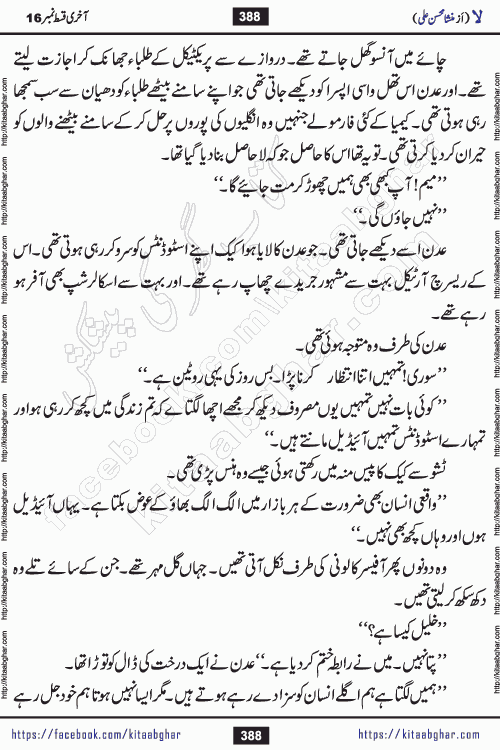 لا (از منشا محسن علی) 388 آخری قسط نمبر 16
چائے میں آنسو گھل جاتے تھے۔ دروازے سے پریکٹیکل کے طلباء جھانک کر اجازت لیتے
تھے۔ اور عدن اس تھل واسی اپسرا کو دیکھے جاتی تھی جو اپنے سامنے بیٹھے طلباء کو دھیان سے سب سمجھا
رہی ہوتی تھی۔ کیمیا کے کئی فارمولے جنہیں وہ انگلیوں کی پوروں پر حل کر کے سامنے بیٹھنے والوں کو
حیران کر دیا کرتی تھی۔ تو یہ تھا اس کا حاصل جو کہ لا حاصل بنا دیا گیا تھا۔
’’میم! آپ کبھی بھی ہمیں چھوڑ کر مت جائیے گا۔‘‘
’’نہیں جاؤں گی۔‘‘
عدن اسے دیکھے جاتی تھی۔ جو عدن کا لایا ہوا کیک اپنے اسٹوڈنٹس کو سرو کر رہی ہوتی تھی۔ اس
کے ریسرچ آرٹیکل بہت سے مشہور جریدے چھاپ رہے تھے۔ اور بہت سے اسکالرشپ بھی آفر ہو
رہے تھے۔
عدن کی طرف وہ متوجہ ہوئی تھی۔
’’سوری! تمہیں اتنا انتظار کرنا پڑا۔ بس روز کی یہی روٹین ہے۔‘‘
’’کوئی بات نہیں تمہیں یوں مصروف دیکھ کر مجھے اچھا لگتا ہے کہ تم زندگی میں کچھ کر رہی ہو اور
تمہارے اسٹوڈنٹس تمہیں آئیڈیل مانتے ہیں۔‘‘
ٹشو سے کیک کا پیس منہ میں رکھتی ہوئی جیسے وہ ہنس پڑی تھی۔
’’واقعی انسان بھی ضرورت کے ہر بازار میں الگ الگ بھاؤ کے عوض بکتا ہے۔ یہاں آئیڈیل
ہوں اور وہاں کچھ بھی نہیں۔‘‘
وہ دونوں پھر آفیسر کالونی کی طرف نکل آتی تھیں۔ جہاں گل مہر تھے۔ جن کے سائے تلے وہ
دکھ سکھ کر لیتی تھیں۔
’’خلیل کیسا ہے؟‘‘
’’پتا نہیں۔ میں نے رابطہ ختم کر دیا ہے۔‘‘ عدن نے ایک درخت کی ڈال کو توڑا تھا۔
’’ہمیں لگتا ہے ہم اگلے انسان کو سزا دے رہے ہوتے ہیں۔ مگر ایسا نہیں ہوتا ہم خود جل رہے
https://facebook.com/kitaabghar 388 https://kitaabghar.com
http://kitaabghar.com
کتاب گھر کی پیشکش
kitaabghar.com
facebook.com/kitaabghar